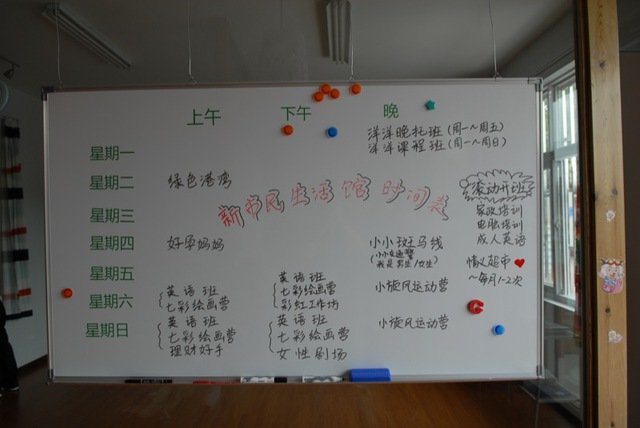 上午 下午 晚
洋洋晚托班（周一～周五）
洋洋课程班（周一～周日）
星期一
星期二 绿色港湾
新市民生活馆时间表
滚动开班
家政培训
电脑培训
成人英语
星期三
星期四 好孕妈妈 小小斑马线
（小小交通警
我是男生/女生）
情义超市❤
～每月1-2次
星期五
英语班 英语班
星期六 七彩绘画营 七彩绘画营 小旋风运动营
彩虹工作坊
星期日 英语班 英语班 小旋风运动营
七彩绘画营 七彩绘画营
理财好手 女性剧场